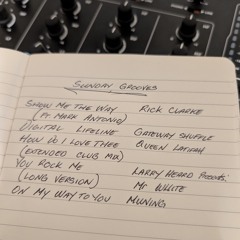 SUNDAY GROOVES
SHOW ME THE WAY RICK CLARKE
(FT MARK ANTONIO)
DIGITAL LIFELINE GATEWAY SHUFFLE
HOW DO I LOVE THEE QUEEN LATIFAH
(EXTENDED CLUB MIX)
YOU ROCK ME LARRY HEARD PRESENTS:
(LONG VERSION) MR WHITE
ON MY WAY TO YOU MUNING